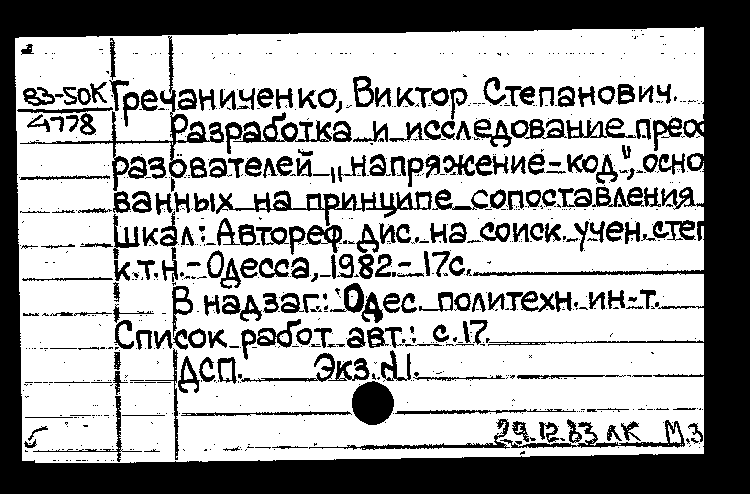 83-50К Гречаниченко, Виктор Степанович.
4778 Разработка и исследование преоб
разователей „напряжение-код", осно
ванных на принципе сопоставления
шкал: Автореф. дис. на соиск. учен. степ
к.т.н.- Одесса, 1982.- 17с.
В надзаг.: Одес. политехн. ин-т.
Список работ авт.: с.17.
ДСП. Экз. №1.
5 29.12.83 ЛК М.З